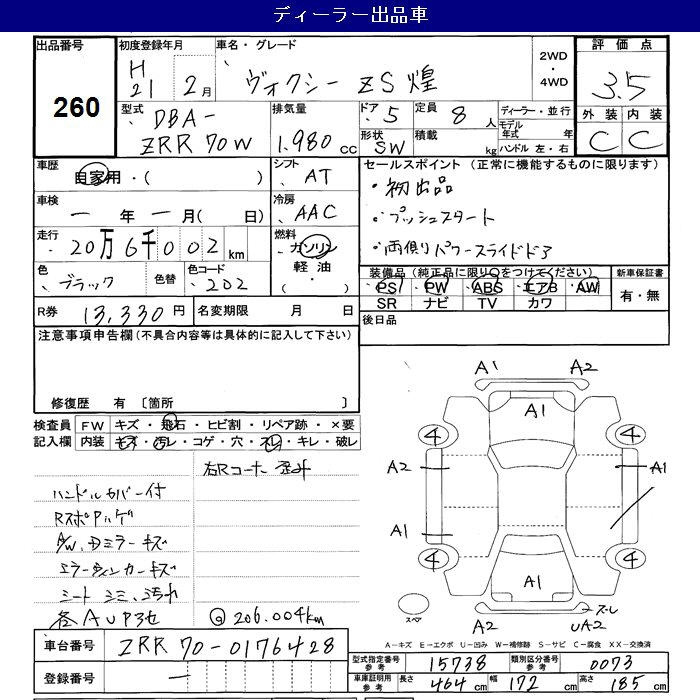 ディーラー出品車
出品番号 初度登録年月 車名・グレード 2WD ・ 4WD 評価点
260 H21 2月 ヴォクシー ZS 煌 3.5
型式 排気量 ドア 定員 ディーラー・並行 外装 内装
DBA- ZRR70W 1.980cc 5 8人 モデル年式 年 C C
形状 SW 積載 kg ハンドル 左・右
車歴 自家用・( ) シフト AT セールスポイント(正常に機能するものに限ります)
車検 一年 一月( 日) 冷房 AAC ・初出品
・プッシュスタート
走行 20万6千002km 燃料 ガソリン 軽油 ・両側パワースライドドア
色 ブラック 色替 色コード 202 装備品(純正品に限り○をつけてください) 新車保証書
PS PW ABS エアB AW 有・無
R券 13,330円 名変期限 月 日 SR ナビ TV カワ
注意事項申告欄(不具合内容等は具体的に記入して下さい) 後日品
修復歴 有 〔箇所 〕
検査員 FW キズ・飛石・ヒビ割・リペア跡・×要
記入欄 内装 キズ・汚レ・コゲ・穴・スレ・キレ・破レ
右Rコーナー 歪み
ハンドルカバー付
A/W、Dミラーキズ
シート シミ、汚れ
各AUP他 206.004km
A1 A2
A1
4 4
A2 A1
A1
4 4
A1
スペア
スレ
A2 UA2
A-キズ E-エクボ U-凹み W-補修跡 S-サビ C-腐食 XX-交換済
車台番号 ZRR70-0176428
型式指定番号 参考 15738 類別区分番号 参考 0073
登録番号 一
車庫証明用 参考 長さ 464cm 幅 172cm 高さ 185cm